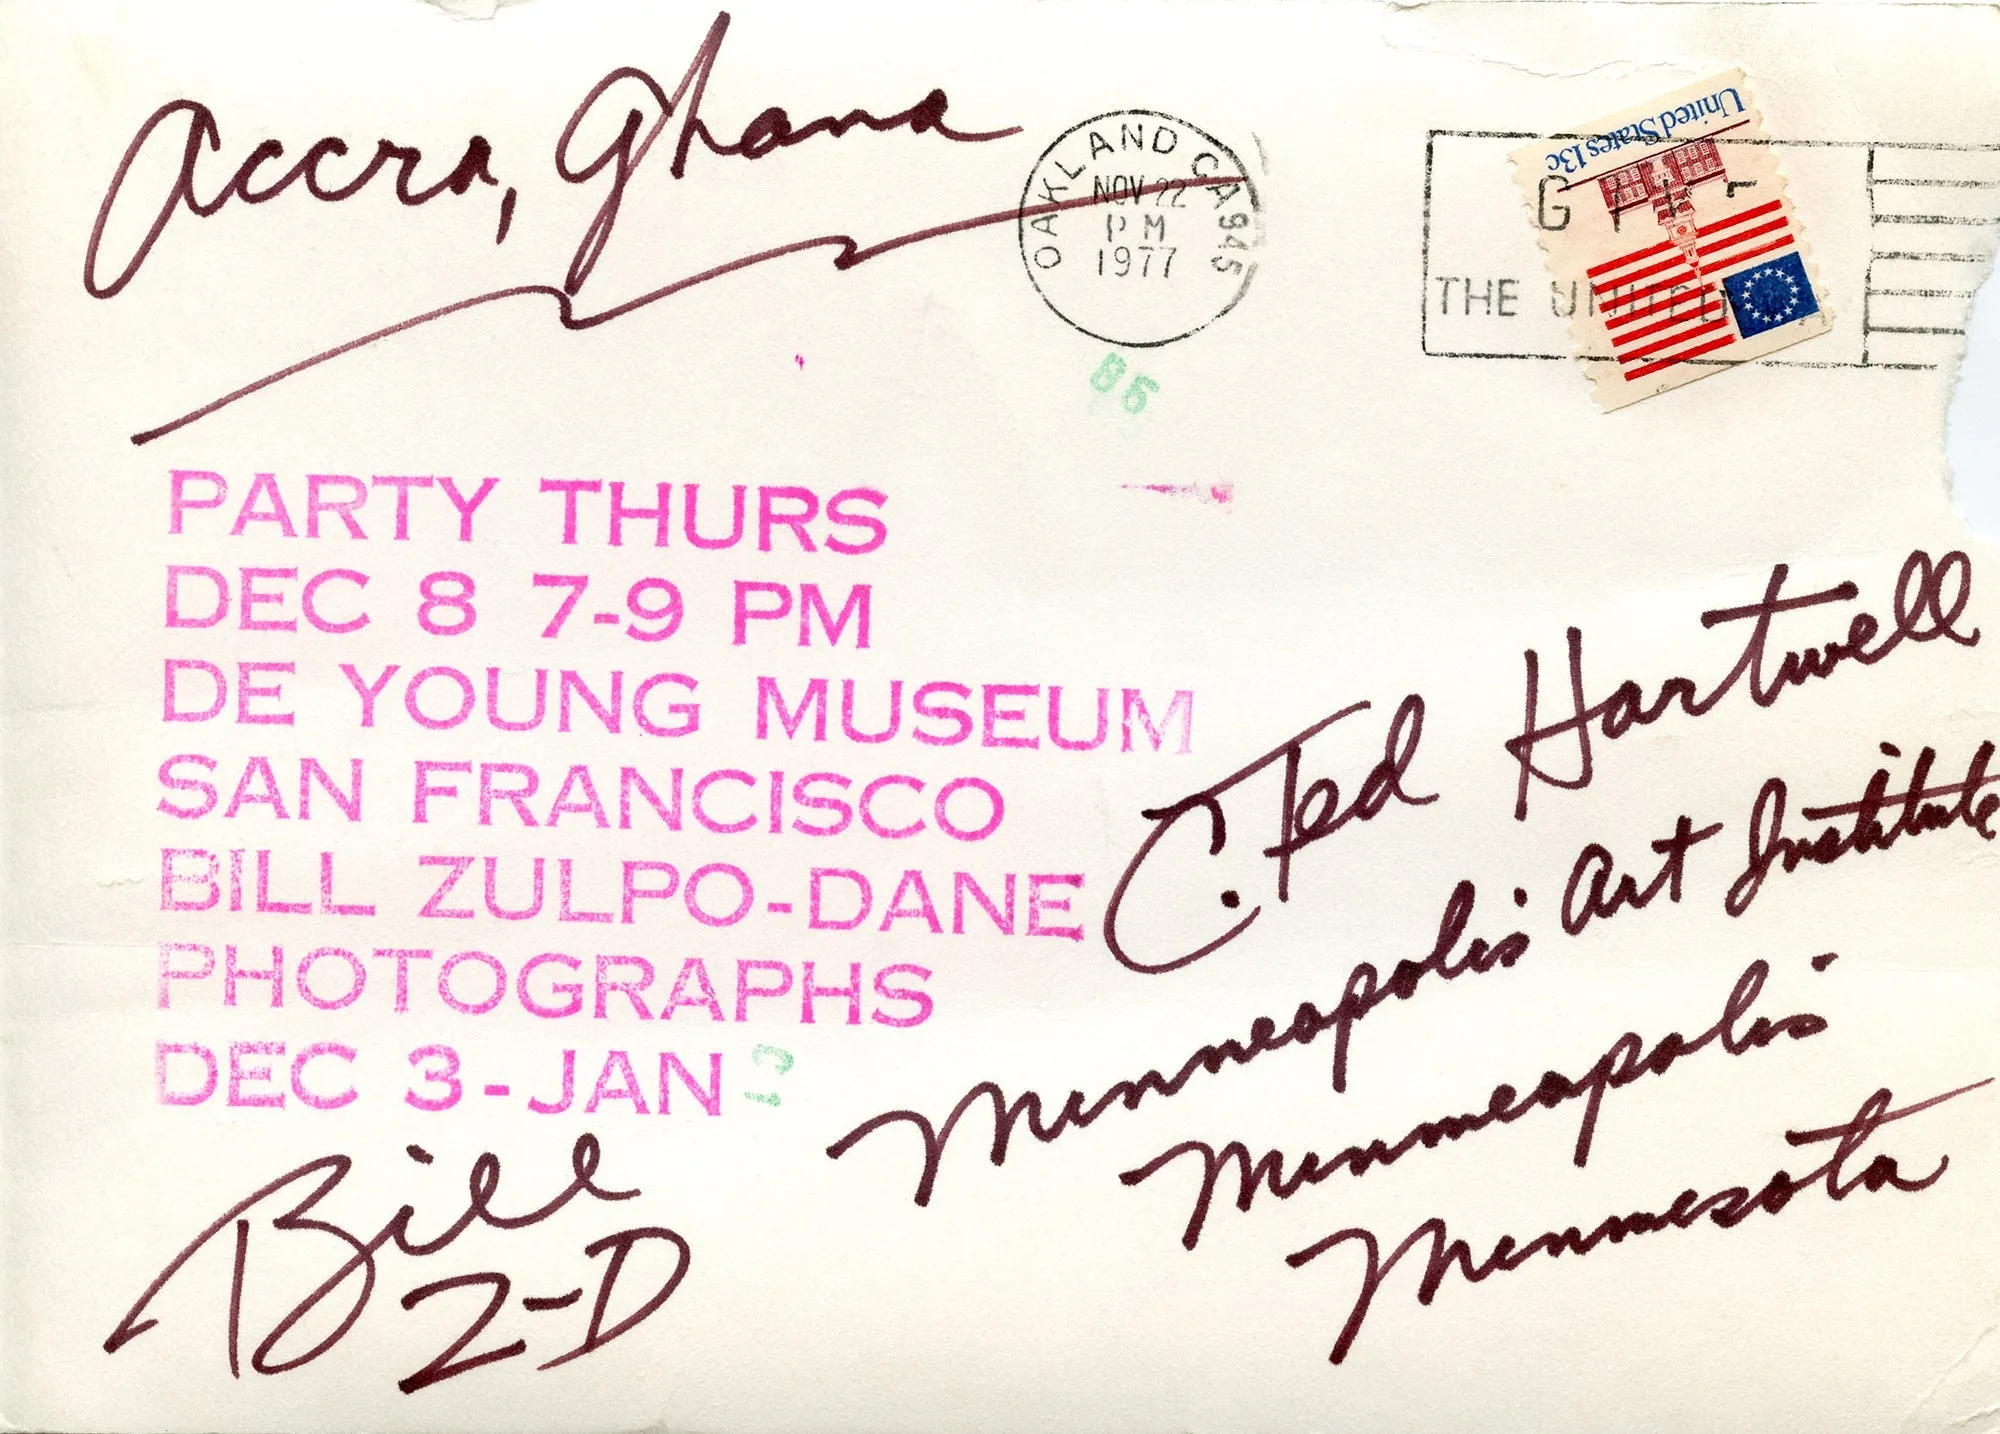 Accra, Ghana
OAKLAND CA 945
NOV 22
PM
1977
United States 13c
THE UNITED WAY
86
PARTY THURS
DEC 8 7-9 PM
DE YOUNG MUSEUM
SAN FRANCISCO
BILL ZULPO-DANE
PHOTOGRAPHS
DEC 3-JAN
Bill
Z-D
C. Ted Hartwell
Minneapolis Art Institute
Minneapolis
Minnesota